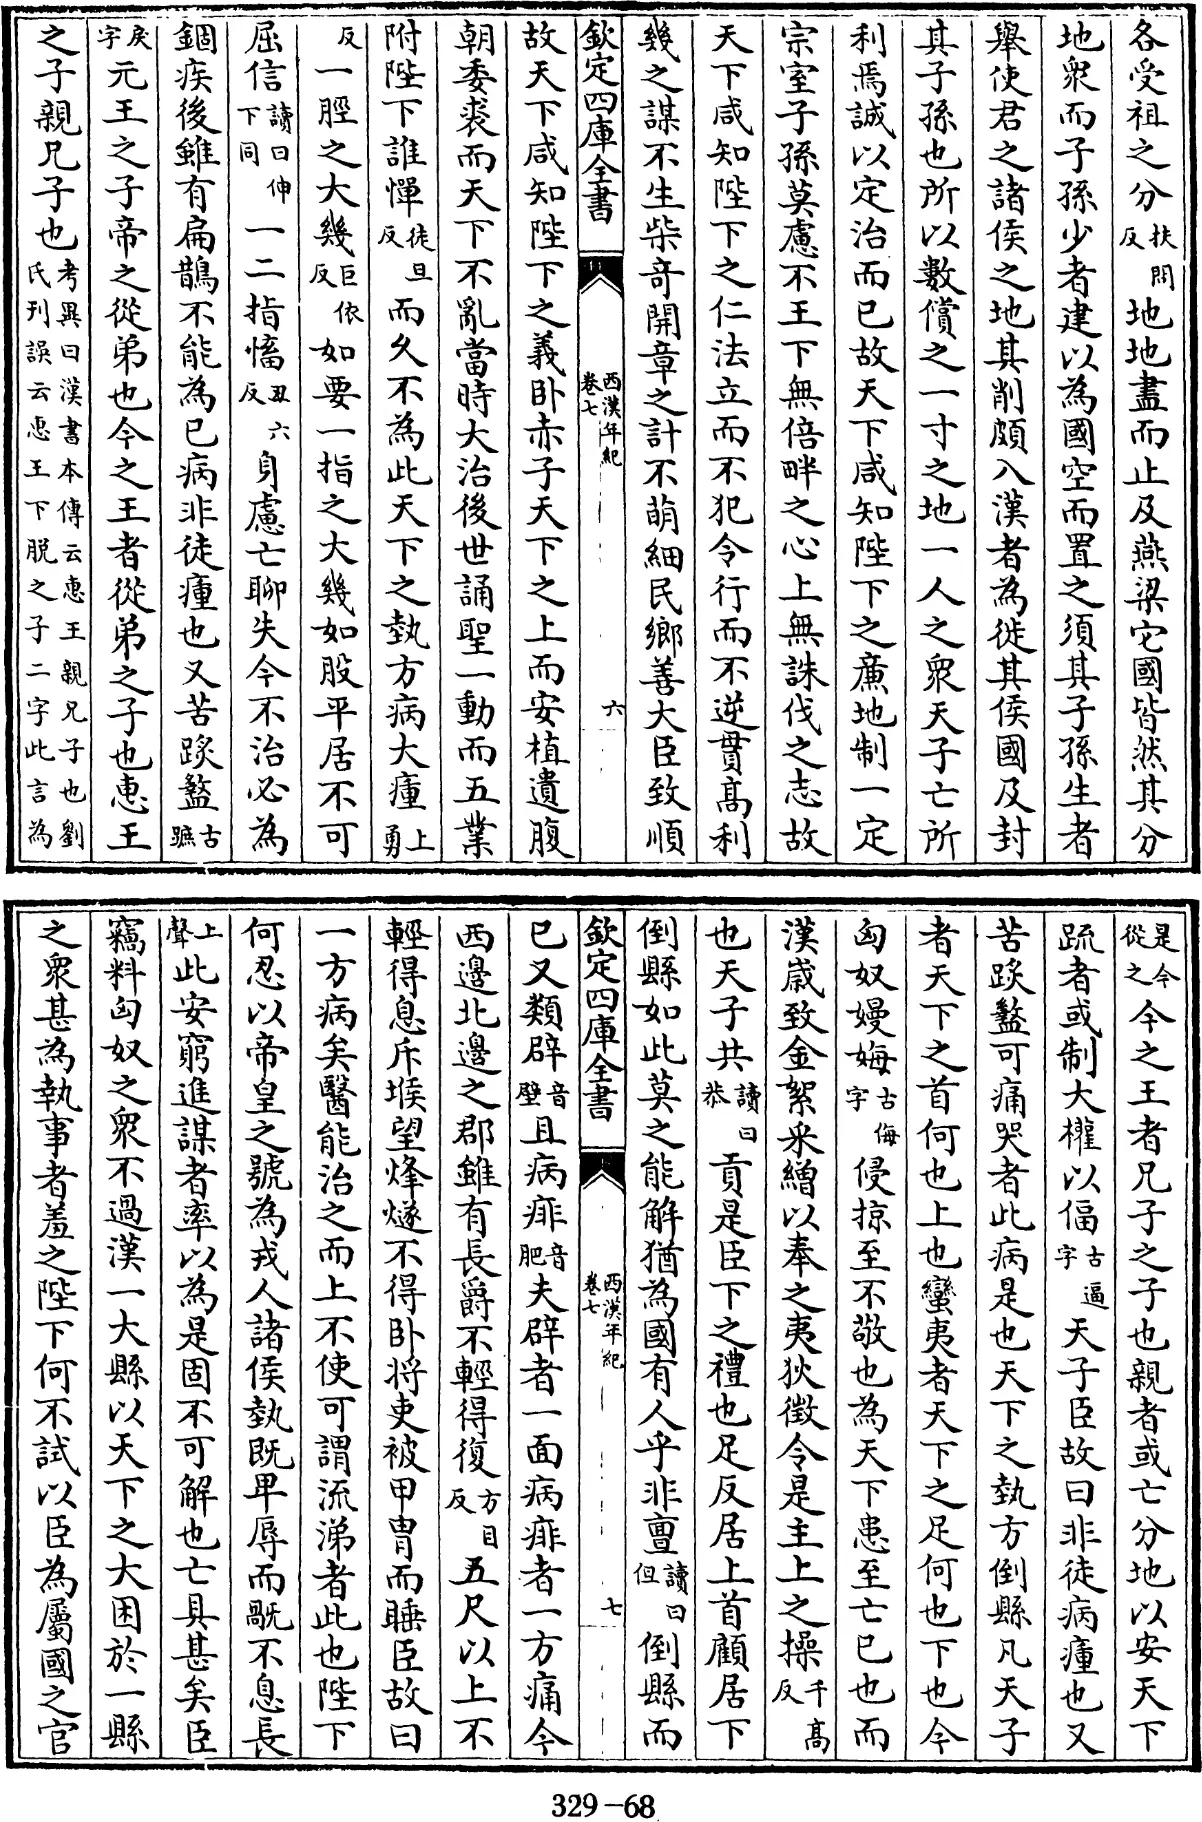 各受祖之分扶問反地地盡而止及燕梁它國皆然其分
地衆而子孫少者建以為國空而置之須其子孫生者
舉使君之諸侯之地其削頗入漢者為徙其侯國及封
其子孫也所以數償之一寸之地一人之衆天子亡所
利焉誠以定治而已故天下咸知陛下之廉地制一定
宗室子孫莫慮不王下無倍畔之心上無誅伐之志故
天下咸知陛下之仁法立而不犯令行而不逆貫高利
幾之謀不生柴奇開章之計不萌細民鄉善大臣致順
欽定四庫全書 西漢年紀卷七 六
故天下咸知陛下之義卧赤子天下之上而安植遺腹
朝委裘而天下不亂當時大治後世誦聖一動而五業
附陛下誰憚徒旦反而久不為此天下之埶方病大瘇上勇
反一脛之大幾巨依反如要一指之大幾如股平居不可
屈信讀曰伸下同一二指慉丑六反身慮亡聊失今不治必為
錮疾後雖有扁鵲不能為已病非徒瘇也又苦䠠盭古蹠
戾字元王之子帝之從弟也今之王者從弟之子也惠王
之子親兄子也考異曰漢書本傳云惠王親兄子也劉氏刊誤云惠王下脱之子二字此言為
是今從之今之王者兄子之子也親者或亡分地以安天下
疏者或制大權以偪古逼字天子臣故曰非徒病瘇也又
苦䠠盭可痛哭者此病是也天下之埶方倒縣凡天子
者天下之首何也上也蠻夷者天下之足何也下也今
匈奴嫚娒古侮字侵掠至不敬也為天下患至亡已也而
漢歲致金絮采繒以奉之夷狄徵令是主上之操千高反
也天子共讀曰恭貢是臣下之禮也足反居上首顧居下
倒縣如此莫之能解猶為國有人乎非亶讀曰但倒縣而
欽定四庫全書 西漢年紀卷七 七
已又類辟音壁且病痱音肥夫辟者一面病痱者一方痛今
西邊北邊之郡雖有長爵不輕得復方目反五尺以上不
輕得息斥堠望烽燧不得卧将吏被甲冑而睡臣故曰
一方病矣醫能治之而上不使可謂流涕者此也陛下
何忍以帝皇之號為戎人諸侯埶既卑辱而旤不息長
上聲此安窮進謀者率以為是固不可解也亡具甚矣臣
竊料匈奴之衆不過漢一大縣以天下之大困於一縣
之衆甚為執事者羞之陛下何不試以臣為屬國之官
329-68